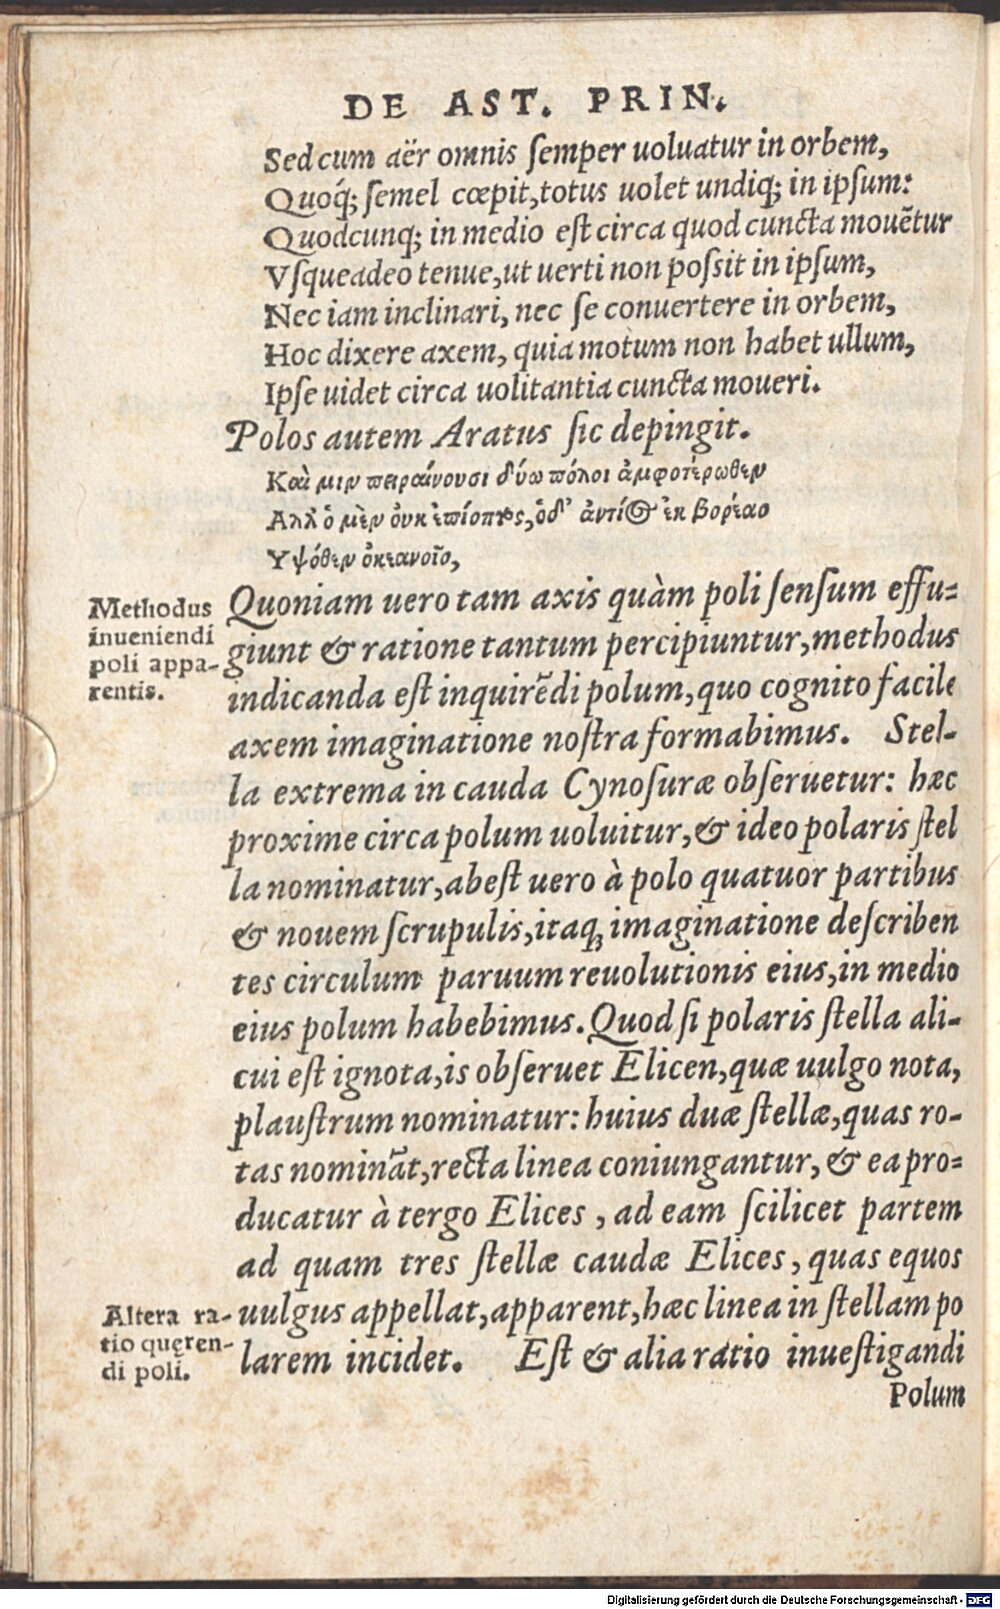 DE AST. PRIN.
Sed cum aër omnis semper uoluatur in orbem,
Quoq́; semel cœpit, totus uolet undiq; in ipsum:
Quodcunq; in medio est circa quod cuncta mouẽtur
Vsqueadeo tenue, ut uerti non possit in ipsum,
Nec iam inclinari, nec se conuertere in orbem,
Hoc dixere axem, quia motum non habet ullum,
Ipse uidet circa uolitantia cuncta moueri.
Polos autem Aratus sic depingit.
Καὶ μιν πειραίνουσι δύω πόλοι ἀμφοτέρωθεν
Αλλ' ὁ μὲν οὐκ ἐπίοπτος, ὁδ' ἀντίος ἐκ βορέαο
Υψόθεν ὀκεανοῖο,
Methodus
inueniendi
poli appa-
rentis.
Quoniam uero tam axis quàm poli sensum effu-
giunt & ratione tantum percipiuntur, methodus
indicanda est inquirẽdi polum, quo cognito facile
axem imaginatione nostra formabimus. Stel-
la extrema in cauda Cynosuræ obseruetur: hæc
proxime circa polum uoluitur, & ideo polaris stel
la nominatur, abest uero à polo quatuor partibus
& nouem scrupulis, itaq; imaginatione describen
tes circulum paruum reuolutionis eius, in medio
eius polum habebimus. Quod si polaris stella ali-
cui est ignota, is obseruet Elicen, quæ uulgo nota,
plaustrum nominatur: huius duæ stellæ, quas ro-
tas nominãt, recta linea coniungantur, & ea pro-
ducatur à tergo Elices, ad eam scilicet partem
ad quam tres stellæ caudæ Elices, quas equos
uulgus appellat, apparent, hæc linea in stellam po
larem incidet. Est & alia ratio inuestigandi
Altera ra-
tio quęren-
di poli.
Polum
Digitalisierung gefördert durch die Deutsche Forschungsgemeinschaft - DFG